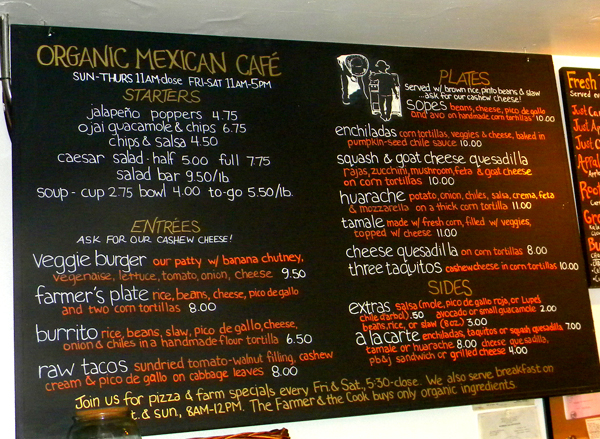 ORGANIC MEXICAN CAFÉ
SUN-THURS 11AM-close FRI-SAT 11AM-5PM
STARTERS
jalapeño poppers 4.75
ojai guacamole & chips 6.75
chips & salsa 4.50
caesar salad-half 5.00 full 7.75
salad bar 9.50/lb
soup - cup 2.75 bowl 4.00 to-go 5.50/lb.
ENTRÉES
ASK FOR OUR CASHEW CHEESE!
veggie burger our patty w/ banana chutney,
vegenaise, lettuce, tomato, onion, cheese 9.50
farmer's plate rice, beans, cheese, pico de gallo
and two corn tortillas 8.00
burrito rice, beans, slaw, pico de gallo, cheese,
onion & chiles in a handmade flour tortilla 6.50
raw tacos sundried tomato-walnut filling, cashew
cream & pico de gallo on cabbage leaves 8.00
PLATES
served w/ brown rice, pinto beans & slaw
...ask for our cashew cheese!
sopes beans, cheese, pico de gallo
and avo on handmade corn tortillas 10.00
enchiladas corn tortillas, veggies & cheese, baked in
pumpkin-seed chile sauce 10.00
squash & goat cheese quesadilla
rajas, zucchini, mushroom, feta & goat cheese
on corn tortillas 10.00
huarache potato, onion, chiles, salsa, crema, feta
& mozzarella on a thick corn tortilla 11.00
tamale made w/ fresh corn, filled w/ veggies,
topped w/ cheese 11.00
cheese quesadilla on corn tortillas 8.00
three taquitos cashew cheese in corn tortillas 10.00
SIDES
extras salsa (mole, pico de gallo roja, or Lupe's
chile d'arbol) .50 avocado or small guacamole 2.00
beans, rice, or slaw (8 oz.) 3.00
a la carte enchiladas, taquitos or squash quesadilla 7.00
tamale or huarache 8.00 cheese quesadilla,
pb&j sandwich or grilled cheese 4.00
Join us for pizza & farm specials every Fri & Sat, 5:30-close. We also serve breakfast on
t. & Sun, 8AM-12PM. The Farmer & the Cook buys only organic ingredients.
Fresh
Served
Just
Just
Just